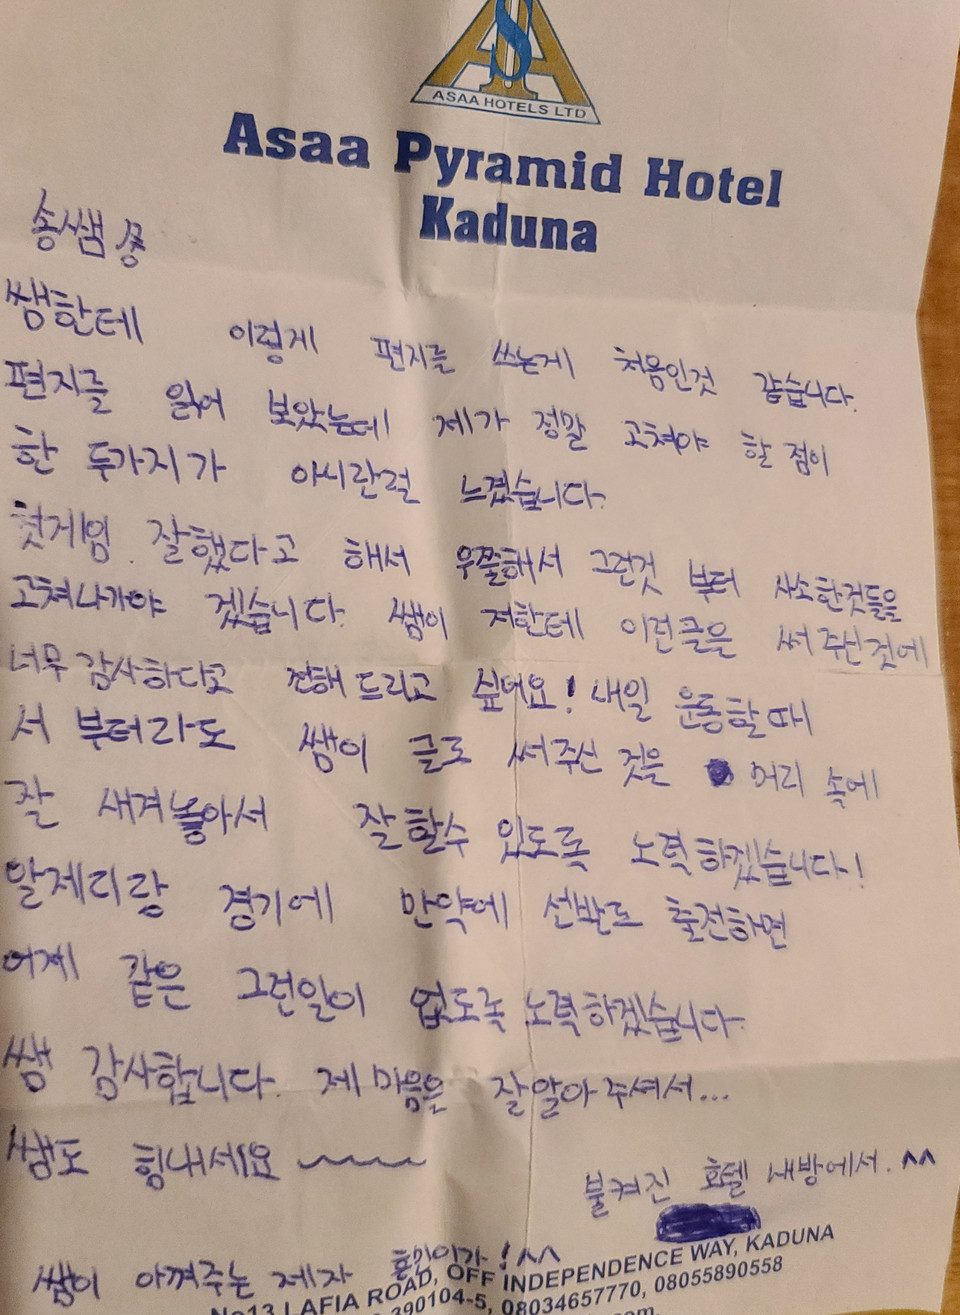 ASAA HOTELS LTD
Asaa Pyramid Hotel
Kaduna
송쌤
쌤한테 이렇게 편지를 쓰는게 처음인것 같습니다.
편지를 읽어 보았는데 제가 정말 고쳐야 할 점이
한 두가지가 아니란걸 느꼈습니다.
첫게임 잘했다고 해서 우쭐해서 그런것 부터 사소한것들을
고쳐나가야 겠습니다. 쌤이 저한테 이런글을 써 주신것에
너무 감사하다고 전해 드리고 싶어요! 내일 운동할 때
서 부터라도 쌤이 글로 써주신 것을 머리 속에
잘 새겨놓아서 잘 할수 있도록 노력하겠습니다!
알제리랑 경기에 만약에 선발로 출전하면
어제 같은 그런일이 없도록 노력하겠습니다.
쌤 감사합니다. 제 마음을 잘 알아 주셔서...
쌤도 힘내세요~
불켜진 호텔 내방에서. ^^
쌤이 아껴주는 제자 !^^
No13 LAFIA ROAD, OFF INDEPENDENCE WAY, KADUNA
390104-5, 08034657770, 08055890558